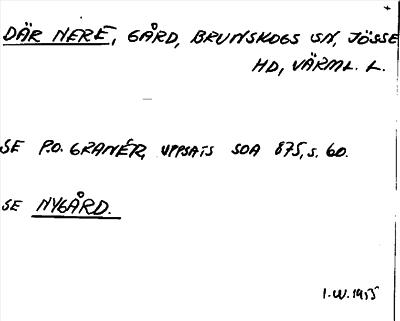 DÄR NERE, GÅRD, BRUNSKOGS SN, JÖSSE
HD, VÄRML. L.
SE P.O. GRANÉR, UPPSATS SOA 875, S. 60.
SE NYGÅRD.
I.W. 1955